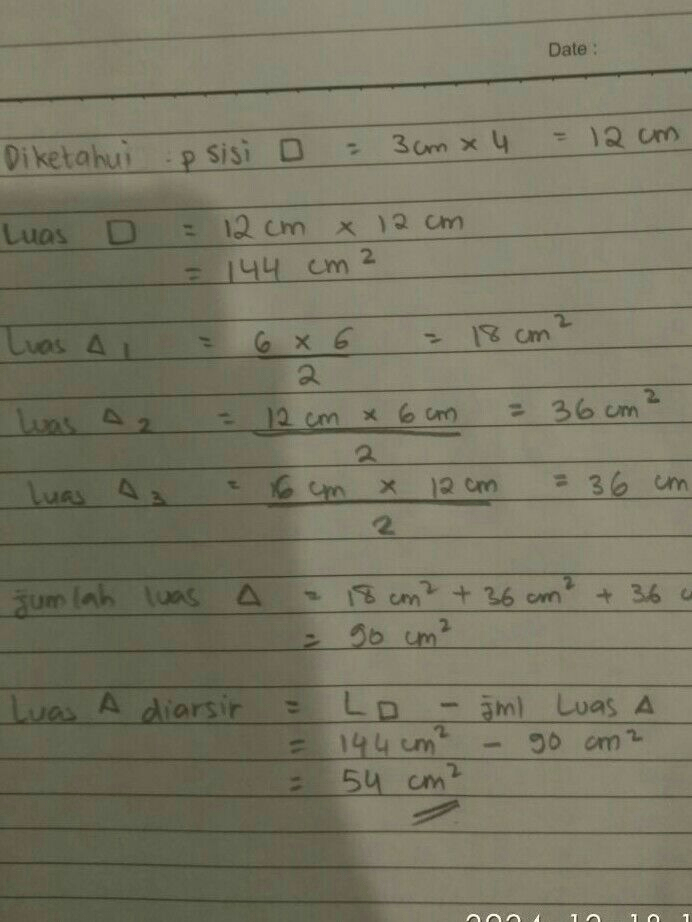 Date :
Diketahui : p sisi □ = 3cm × 4 = 12 cm
Luas □ = 12 cm × 12 cm
= 144 cm²
Luas Δ 1 = 6 × 6 = 18 cm²
2
Luas Δ 2 = 12 cm × 6 cm = 36 cm²
2
Luas Δ 3 = 6 cm × 12 cm = 36 cm
2
jumlah luas Δ = 18 cm² + 36 cm² + 36 c
= 90 cm²
Luas Δ diarsir = L □ - jml Luas Δ
= 144 cm² - 90 cm²
= 54 cm²